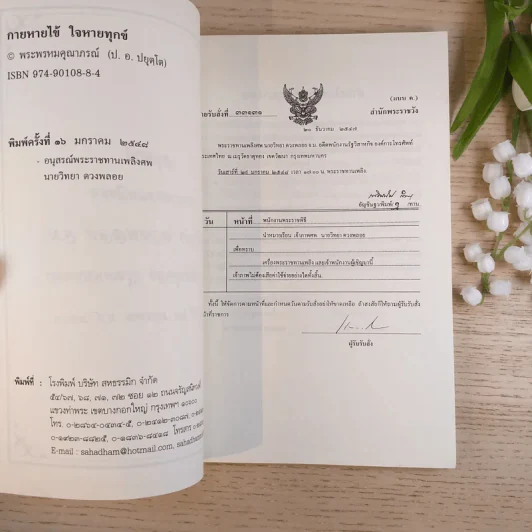 กายหายไข้ ใจหายทุกข์
© พระพรหมคุณาภรณ์ (ป. อ. ปยุตฺโต)
ISBN 974-90108-8-4
พิมพ์ครั้งที่ ๑๖ มกราคม ๒๕๔๘
- อนุสรณ์พระราชทานเพลิงศพ
นายวิทยา ดวงพลอย
พิมพ์ที่ : โรงพิมพ์ บริษัท สหธรรมิก จำกัด
๕๔/๖๗, ๖๘, ๗๑, ๗๒ ซอย ๑๒ ถนนจรัญสนิทวงศ์
แขวงท่าพระ เขตบางกอกใหญ่ กรุงเทพฯ ๑๐๖๐๐
โทร. ๐-๒๘๖๔-๐๔๓๔-๕, ๐-๒๔๑๒-๓๐๘๗,
๐-๑๙๒๓-๘๘๒๕, ๐-๑๘๓๖-๘๔๑๘ โทรสาร
E-mail : sahadham@hotmail.com,
(แบบ ๓.)
ายรับสั่งที่ ๓๓๑๓๑ สำนักพระราชวัง
๒๐ ธันวาคม ๒๕๔๗
พระราชทานเพลิงศพ นายวิทยา ดวงพลอย
กรุงเทพมหานคร
วันเสาร์ที่ มกราคม ๒๕๔๘ เวลา น. พระราชทานเพลิง
วัน หน้าที่ พนักงานพระราชพิธี
นำหมายเรียน เจ้าภาพศพ นายวิทยา ดวงพลอย
เพื่อทราบ
เครื่องพระราชทานเพลิง และเจ้าพนักงานผู้เชิญมานี้
เจ้าภาพไม่ต้องเสียค่าใช้จ่ายอย่างใดทั้งสิ้น.
ทั้งนี้ ให้จัดการตามหน้าที่และกำหนดวันตามรับสั่งอย่าให้ขาดเหลือ ถ้าสงสัยก็ให้ถามผู้รับรับสั่ง
ผู้รับรับสั่ง